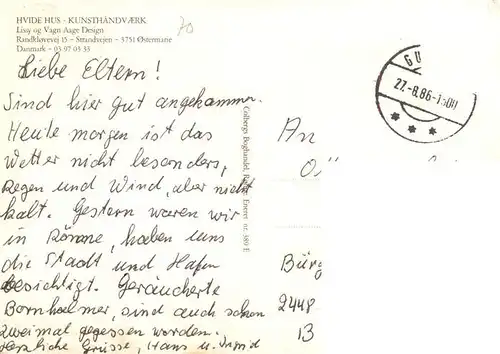 HVIDE HUS · KUNSTHÅNDVÆRK
Lissy og Vagn Aage Design
Randkløvevej 15 – Strandvejen – 3751 Østermarie
Danmark – 03 97 03 33
70
Liebe Eltern!
Sind hier gut angekommen.
Heute morgen ist das
Wetter nicht besonders,
Regen und Wind, aber nicht
kalt. Gestern waren wir
in Rönne, haben uns
die Stadt und Hafen
besichtigt. Geräucherte
Bornholmer, sind auch schon
zweimal gegessen worden.
Herzliche Grüsse, Hans u. Ingrid
Colbergs Boghandel, Rønne. Eneret nr. 389 E
GU
27.-8.86-15
An
Bürg
2448
B